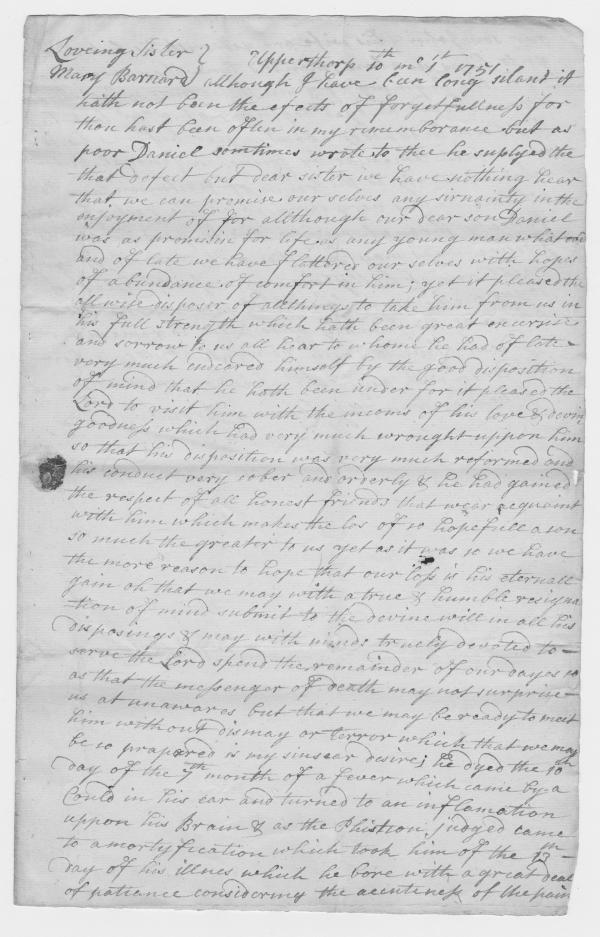 Loveing Sister } Upperthorp 10th mo 1st 1751
Mary Barnard } allthough J have been long silant it
hath not been the efects of forgetfullness for
thou hast been often in my rimemborance but as
poor Daniel somtimes wrote to thee he suplyed the
that defect but dear sister we have nothing hear
that we can promise our selves any sirtainty in the
enjoyment of for allthough our dear son Daniel
was as promisin for life as any young man what
and of late we have flattored our selves with hopes
of abundance of comfort in him; yet it pleased the
all wise disposer of allthings to take him from us in
his full strength which hath been great excersise
and sorrow to us all hear to whome he had of late -
very much endeared himself by the good disposition
of mind that he hath been under for it pleased the
Lord to visit him with the incoms of his love & devin
goodness which had very much wrought uppon him
so that his disposition was very much reformed and
his conduct very sober and orderly & he had gained
the respect of all honest friends that wear aquaint
with him which makes the los of so hopefull a son
so much the greater to us yet as it was so we have
the more reason to hope that our loss is his eternall
gain oh that we may with a true & humble resigna
-tion of mind submit to the devine will in all his
disposings & may with minds truely devoted to -
serve the Lord spend the remainder of our dayes so
as that the messengar of death may not surprise -
us at unawares but that we may be ready to meet
him without dismay or terror which that we may
be so prapared is my sinsear desire; he dyed the 10th
day of the 7th month of a fever which came by a
Could in his ear and turned to an inflamation
uppon his Brain & as the Phistion judged came
to a mortyfication which took him of the 13th -
day of his illnes which he bore with a great deal
of patiance considering the acentiness of the pain